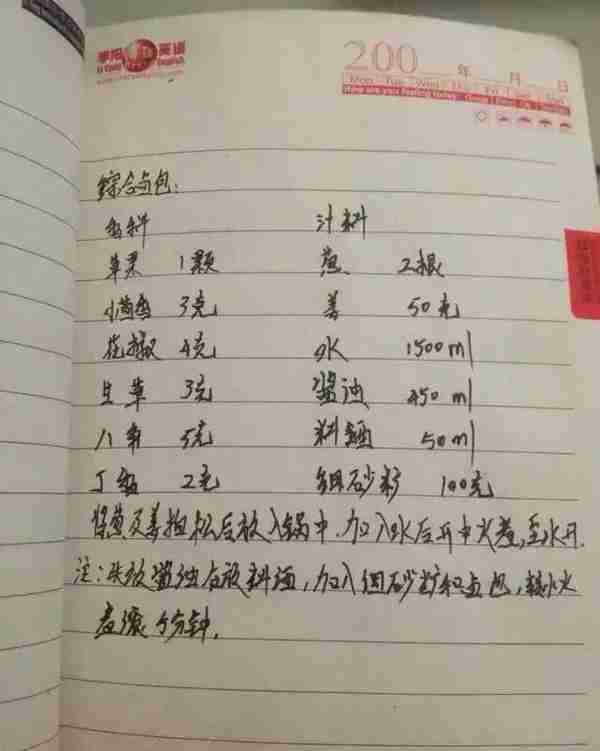 李阳 英语
Li Yang English
200 年 月 日
Mon Tue Wed Thu Fri Sat Sun
How are you feeling today
综合卤包:
香料 汁料
草果 1颗 葱 2根
小茴香 3克 姜 50克
花椒 4克 水 1500ml
甘草 3克 酱油 450ml
八角 5克 料酒 50ml
丁香 2克 细砂糖 100克
将葱及姜拍松后放入锅中.加入水后开中火煮,至水开.
注:先放酱油后放料酒,加入细砂糖和卤包,转小火
煮滚5分钟.